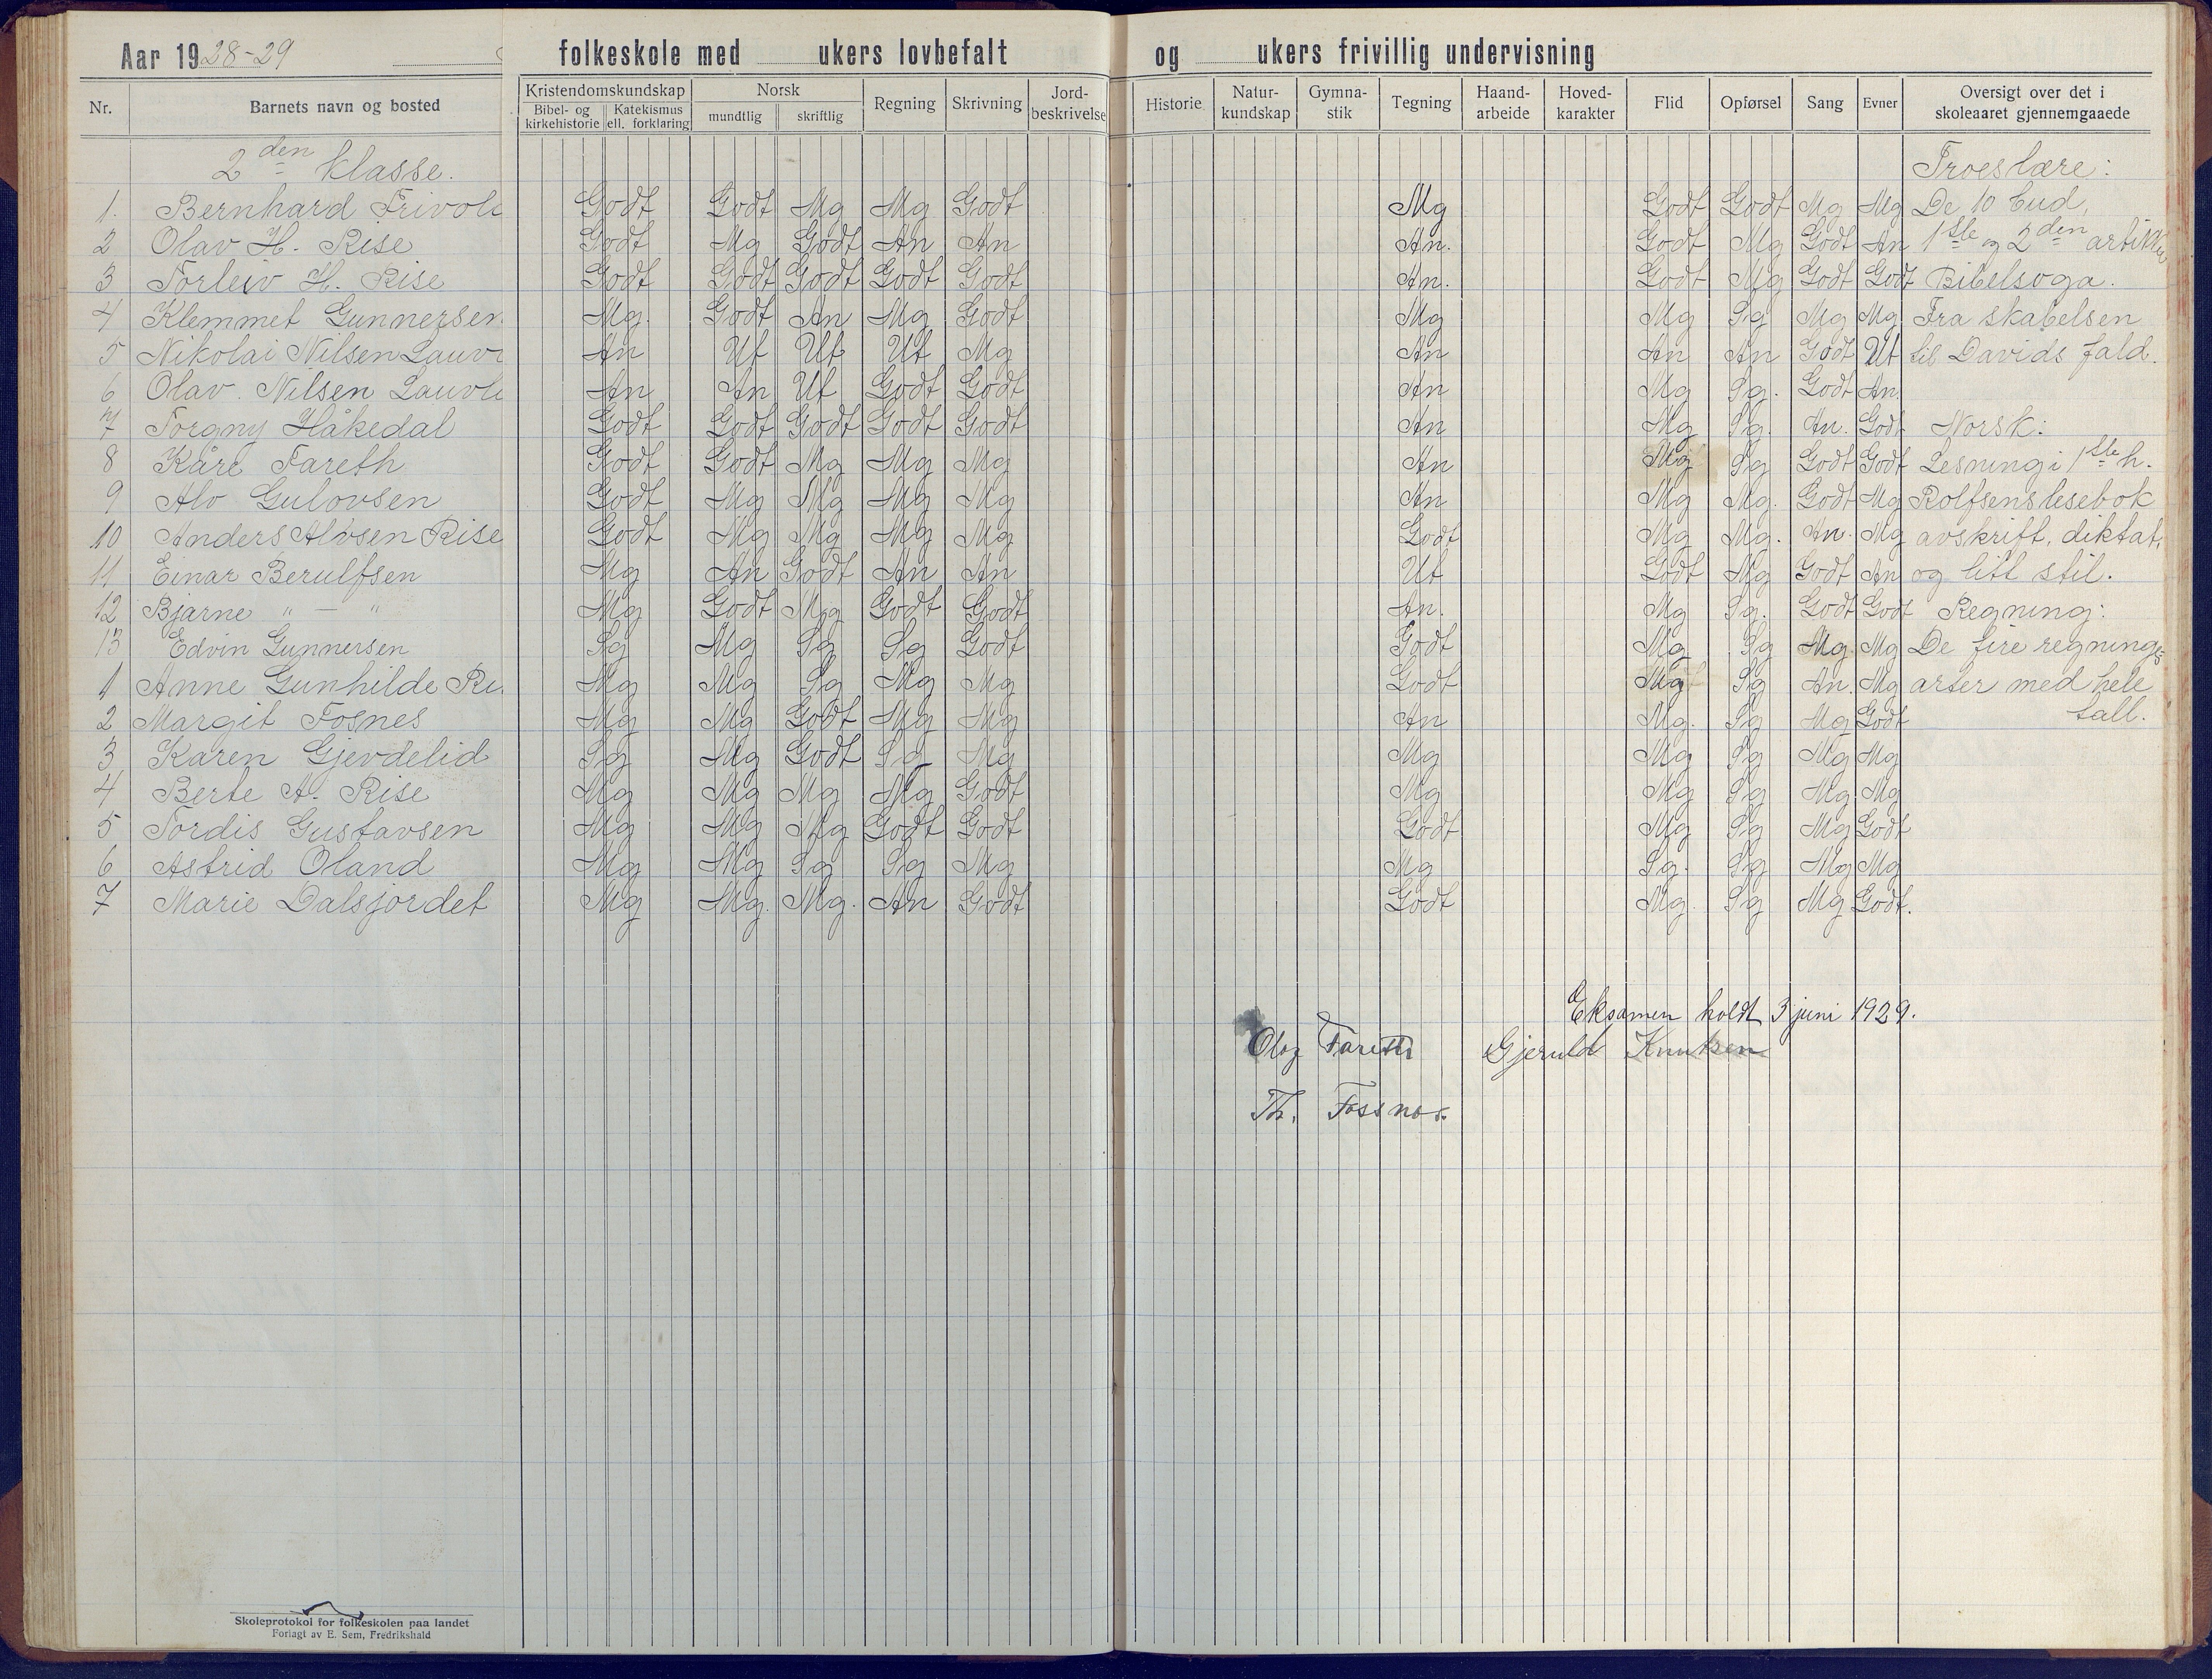 Aar 1928-29 folkeskole med ukers lovbefalt og ukers frivillig undervisning
Nr. Barnets navn og bosted Kristendomskundskap Bibel- og kirkehistorie Katekismus ell. forklaring Norsk mundtlig skriftlig Regning Skrivning Jord-beskrivelse Historie Natur-kundskap Gymna-stik Tegning Haand-arbeide Hoved-karakter Flid Opførsel Sang Evner Oversigt over det i skoleaaret gjennemgaaede
2den klasse. Troeslære:
1. Bernhard Frivol Godt Godt Mg Mg Godt Mg Godt Godt Mg Mg De 10 bud,
2 Olav H. Rise Godt Mg Godt An An An. Godt Mg Godt An 1ste og 2den artikler
3 Torleiv H. Rise Godt Godt Godt Godt Godt An. Godt Mg Godt Godt Bibelsoga.
4 Klemmet Gunnersen Mg. Godt An Mg Godt Mg Mg Sg Mg Mg Fra skabelsen
5 Nikolai Nilsen Lauv An Ut Ut Ut Mg An An An Godt Ut til Davids fald.
6 Olav Nilsen Lauvl An An Ut Godt Godt An Mg Sg. Godt An.
7 Torgny Håkedal Godt Godt Godt Godt Godt An Mg Sg. An. Godt Norsk:
8 Kåre Fareth Godt Godt Mg Mg Mg An Mg Sg Godt Godt Lesning i 1ste h.
9 Alv Gulovsen Godt Mg Mg Mg Mg An Mg Mg. Godt Mg Rolfsens lesebok
10 Anders Alvsen Rise Godt Mg Mg Mg Mg Godt Mg Mg. An. Mg avskrift, diktat,
11 Einar Berulfsen Mg An Godt An An Ut Godt Mg Godt An og litt stil.
12 Bjarne " — " Mg Godt Mg Godt Godt An. Mg Sg. Godt Godt Regning:
13 Edvin Gunnersen Sg Mg Sg Sg Godt Godt Mg Sg Mg Mg De fire regnings
1 Anne Gunhilde Ri Mg Mg Sg Mg Mg Godt Mg Sg An. Mg arter med hele
2 Margit Fosnes Mg Mg Godt Mg Mg An Mg. Sg Mg Godt tall.
3 Karen Gjevdelid Sg Mg Godt Sg Mg Mg Mg Sg Mg Mg
4 Berte A. Rise Mg Mg Mg Mg Godt Mg Mg Sg Mg Mg
5 Tordis Gustavsen Mg Mg Mg Godt Godt Godt Mg Sg Mg Godt
6 Astrid Oland Mg Mg Sg Sg Mg Mg Sg. Sg Mg Mg
7 Marie Dalsjordet Mg Mg. Mg. An Godt Godt Mg. Sg Mg Godt.
Eksamen holdt 3 juni 1929.
Olag Fareth Gjeruld Knutsen
Th. Fossnes.
Skoleprotokol for folkeskolen paa landet
Forlagt av E. Sem, Fredrikshald